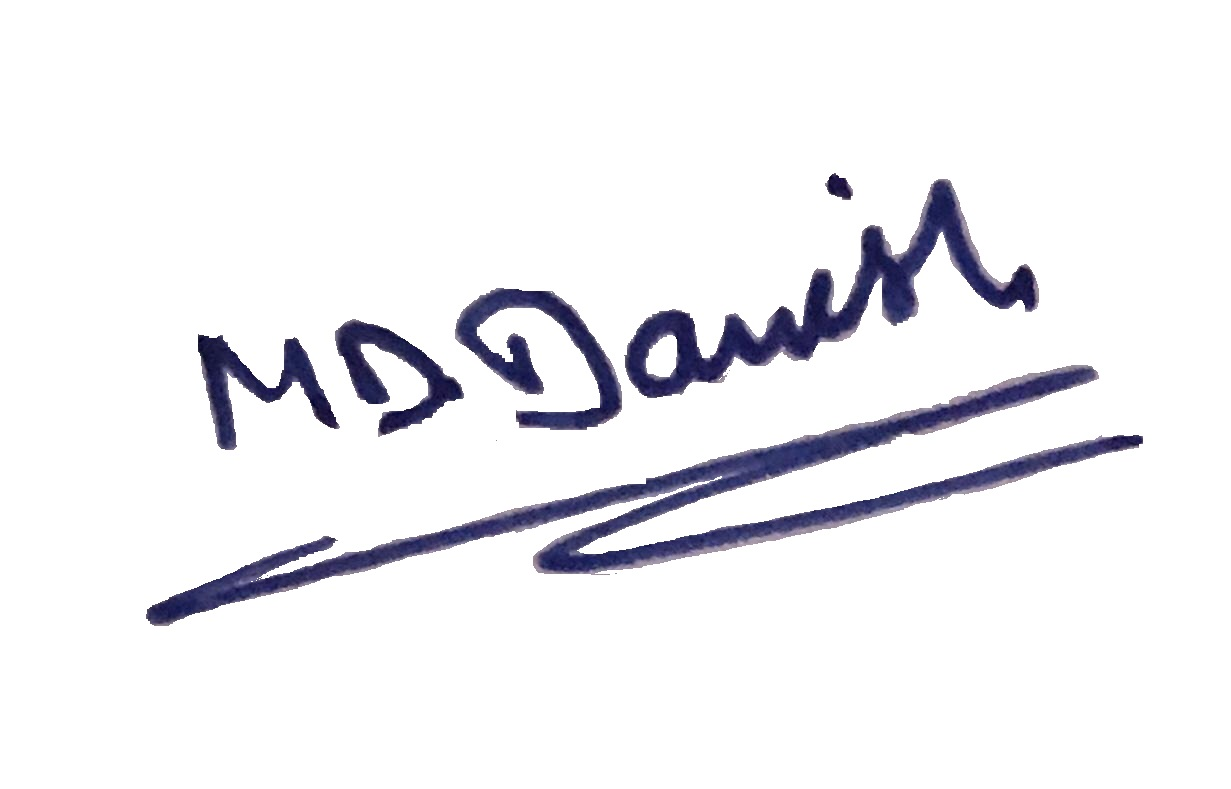 MD Danish